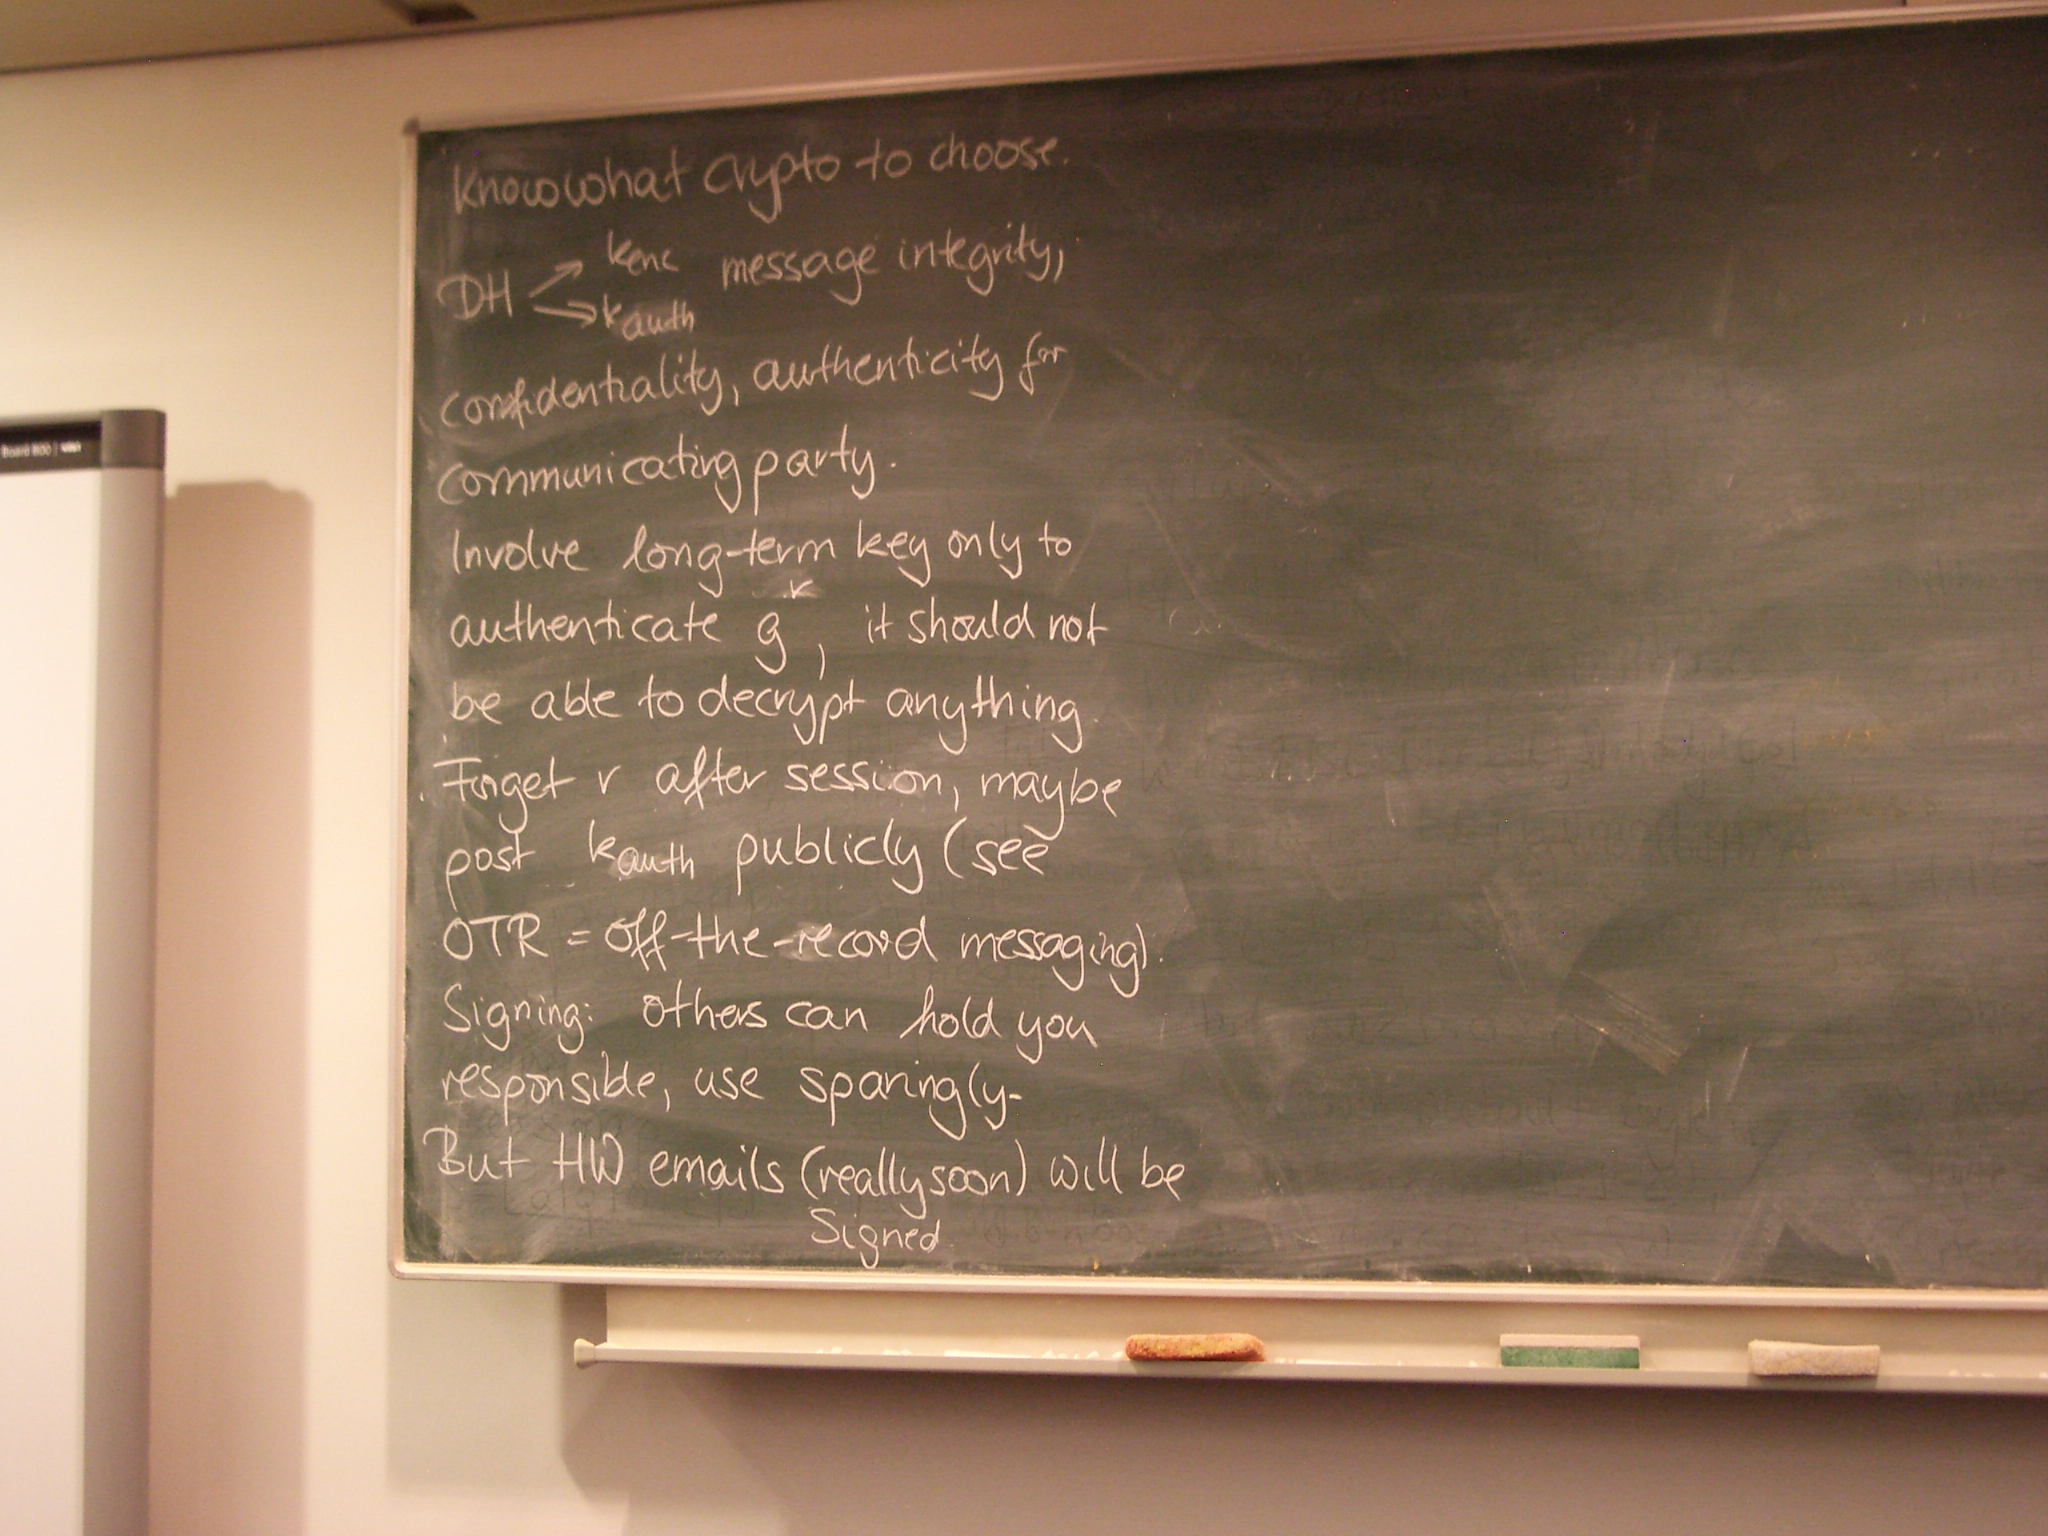 Know what crypto to choose.
DH kenc message integrity,
kauth
confidentiality, authenticity for
communicating party.
Involve long-term key only to
authenticate g^r, it should not
be able to decrypt anything.
Forget r after session, maybe
post kauth publicly (see
OTR = off-the-record messaging).
Signing: others can hold you
responsible, use sparingly.
But HW emails (really soon) will be
Signed.
Board 800